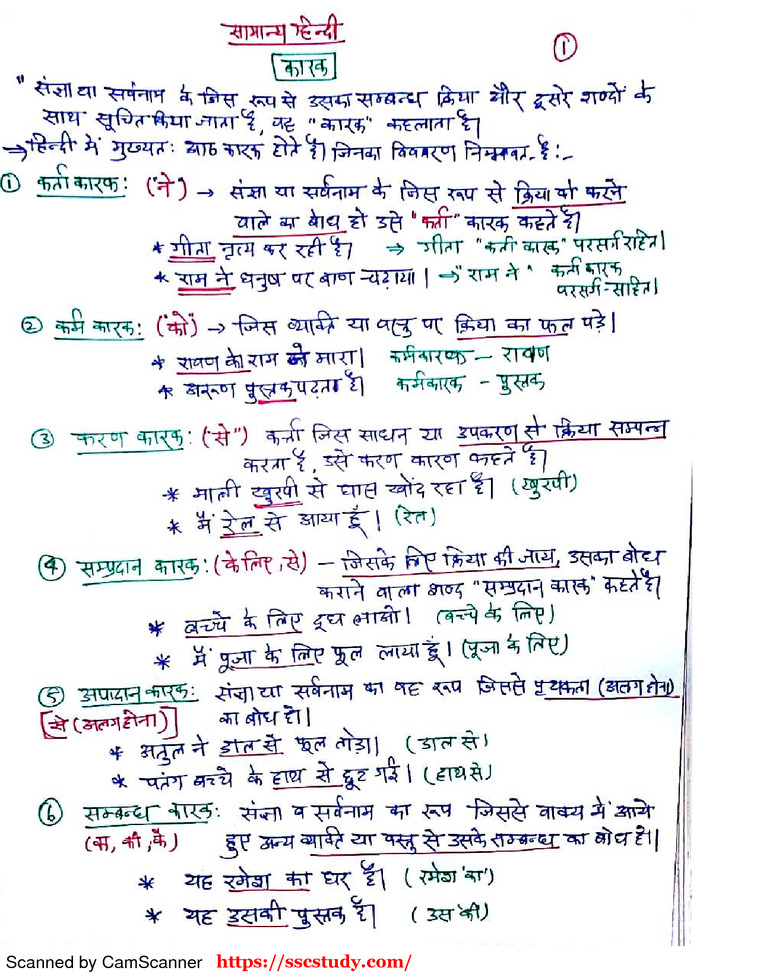 सामान्य हिन्दी
①
कारक
"संज्ञा या सर्वनाम के जिस रूप से उसका सम्बन्ध क्रिया और दूसरे शब्दों के
साथ सूचित किया जाता है, वह "कारक" कहलाता है।
→ हिन्दी में मुख्यतः आठ कारक होते है। जिनका विवरण निम्नवत् है:-
① कर्ता कारक: ('ने') → संज्ञा या सर्वनाम के जिस रूप से क्रिया को करने
वाले का बोध हो उसे "कर्ता" कारक कहते है।
* गीता नृत्य कर रही है। ⇒ गीता "कर्ता कारक" परसर्ग रहित।
* राम ने धनुष पर बाण चढ़ाया। → "राम ने" कर्ता कारक
परसर्ग-सहित।
② कर्म कारक: ('को') → जिस व्यक्ति या वस्तु पर क्रिया का फल पड़े।
* रावण को राम ने मारा। कर्मकारक – रावण
* अरूण पुस्तक पढ़ता है। कर्मकारक - पुस्तक
③ करण कारक: ("से") कर्ता जिस साधन या उपकरण से क्रिया सम्पन्न
करता है, उसे करण कारण कहते है।
* माली खुरपी से घास खोद रहा है। (खुरपी)
* मैं रेल से आया हूँ। (रेल)
④ सम्प्रदान कारक: (के लिए, से) – जिसके लिए क्रिया की जाय, उसका बोध
कराने वाला शब्द "सम्प्रदान कारक" कहते है।
* बच्चे के लिए दूध लाओ। (बच्चे के लिए)
* मैं पूजा के लिए फूल लाया हूँ। (पूजा के लिए)
⑤ अपादान कारक: संज्ञा या सर्वनाम का वह रूप जिससे पृथकता (अलग होना)
[से (अलग होना)] का बोध हो।
* अतुल ने डाल से फूल तोड़ा। (डाल से)
* पतंग बच्चे के हाथ से छूट गई। (हाथ से)
⑥ सम्बन्ध कारक: संज्ञा व सर्वनाम का रूप जिससे वाक्य में आये
(का, की, के) हुए अन्य व्यक्ति या वस्तु से उसके सम्बन्ध का बोध हो।
* यह रमेश का घर है। (रमेश 'का')
* यह उसकी पुस्तक है। (उस 'की')
Scanned by CamScanner https://sscstudy.com/